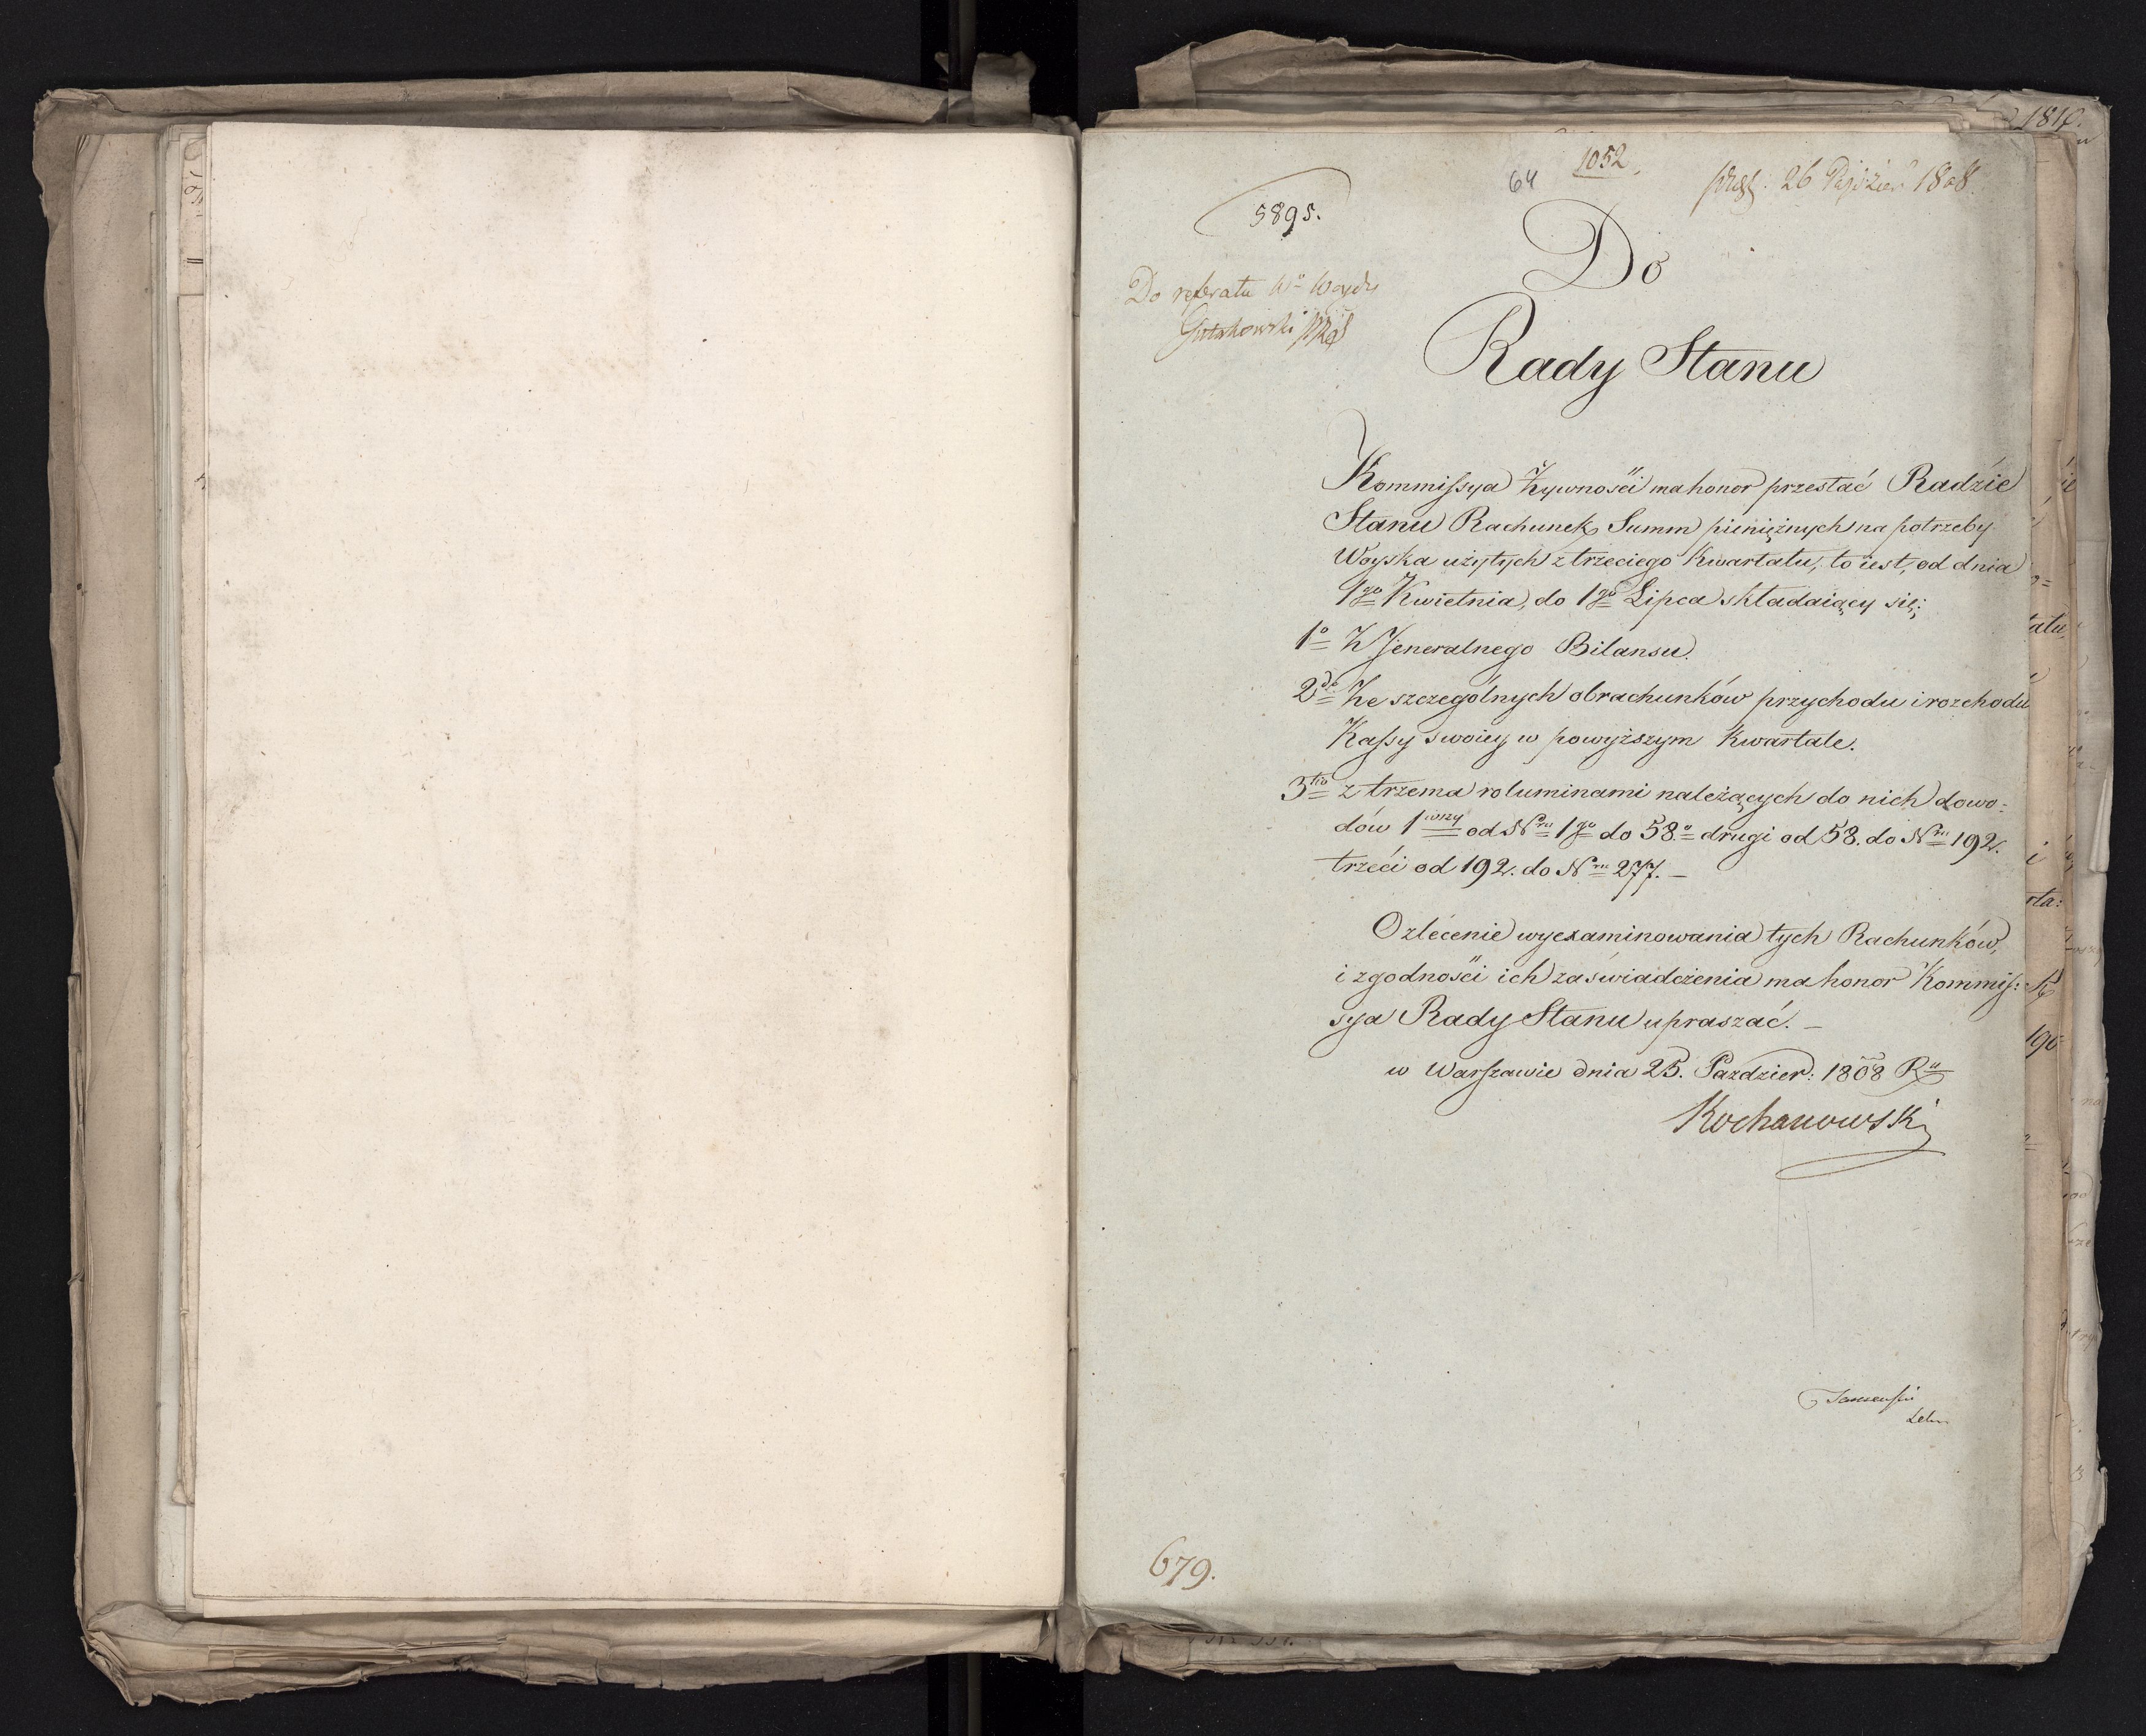 1052.
64
26 Paździer. 1808.
5895.
Do
Do referatu Wo Woydy
Gutakowski
Rady Stanu
Kommissya Żywności ma honor przesłać Radzie
Stanu Rachunek Summ pieniężnych na potrzeby
Woyska użytych z trzeciego Kwartału, to iest, od dnia
1go Kwietnia, do 1go Lipca składaiący się;
1o Z Jeneralnego Bilansu.
2do Ze szczególnych obrachunków przychodu i rozchodu
Kassy swoiey w powyższym Kwartale.
3tio z trzema voluminami należących do nich dowo-
dów 1wszy od Nru 1go do 58.o drugi od 58. do Nru 192.
trzeći od 192. do Nru 277. –
O zlécenie wyexaminowania tych Rachunków,
i zgodności ich zaświadczenia ma honor Kommis:
sya Rady Stanu upraszać. –
w Warszawie dnia 25. Pazdzier: 1808 Ru
Kochanowski
679.